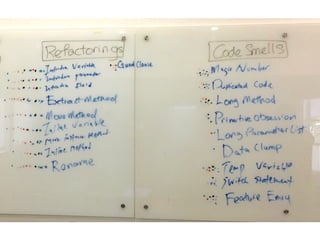 Refactorings
Introduce Variable
Guard Clause
Introduce parameter
Introduce Field
Extract Method
Move Method
Inline Variable
Inline Method
Rename
Code Smells
Magic Number
Duplicated Code
Long Method
Primitive Obsession
Long Parameter List
Data Clump
Temp Variable
Switch Statement
Feature Envy